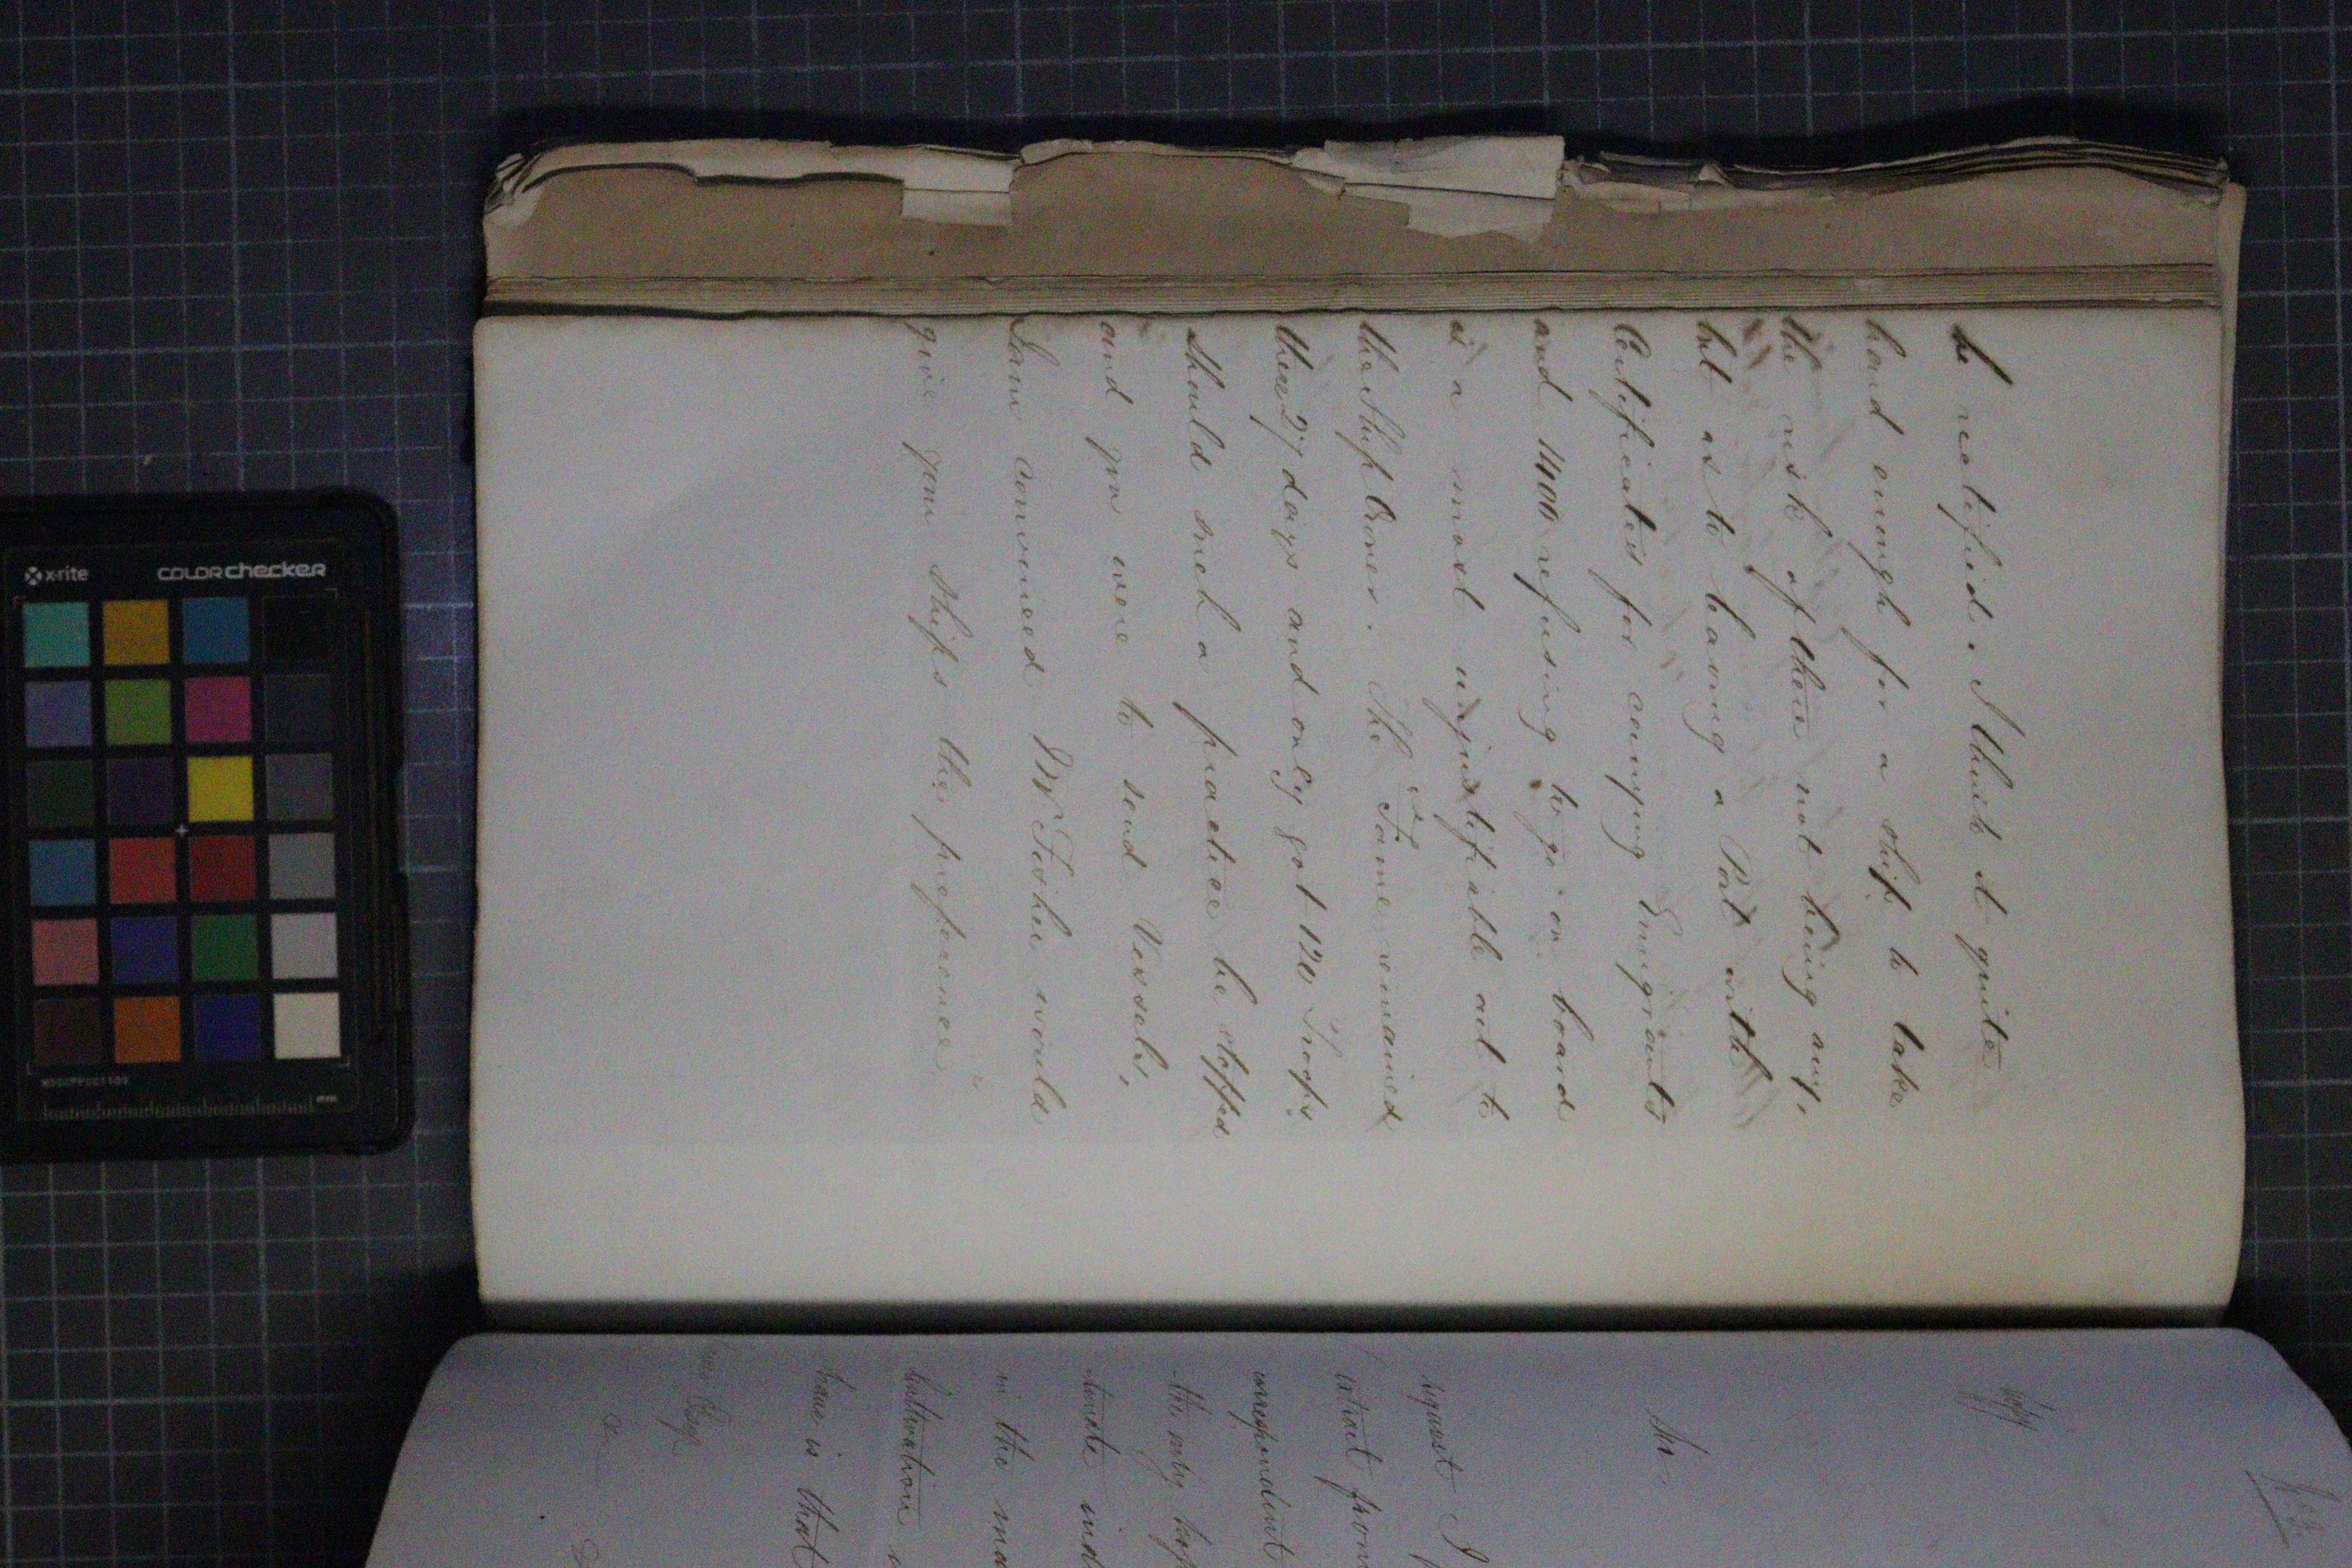 be rectified. I think it quite
hard enough for a ship to take
the risk of there not being any,
but as to leaving a Port with
Certificates for carrying Emigrants
and 1400 refusing to go on board
is a most unjustifiable act to
the Ship Owner. The Fame remained
there 27 days and only got 120 Troops
should such a practice be stopped
and you were to send Vessels,
I am convinced Mr Foshie would
give your Ships the preference,
Sir.
request I
extract from
correspondent
the only
in the
Cultivation
have is that
x-rite
colorchecker